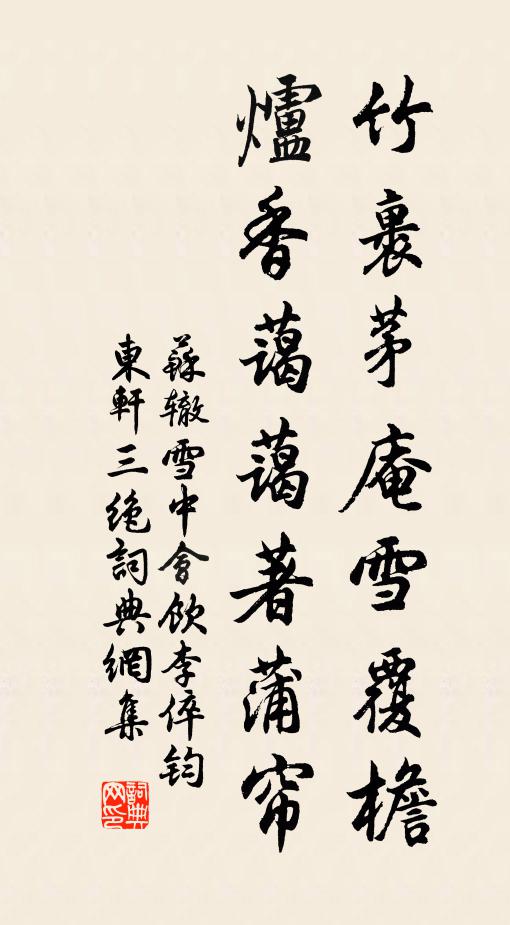 竹裏茅庵雪覆檐
爐香藹藹著蒲帘
蘇辙雪中會飲李倅鈞
東軒三绝詞典網集
詞典网印